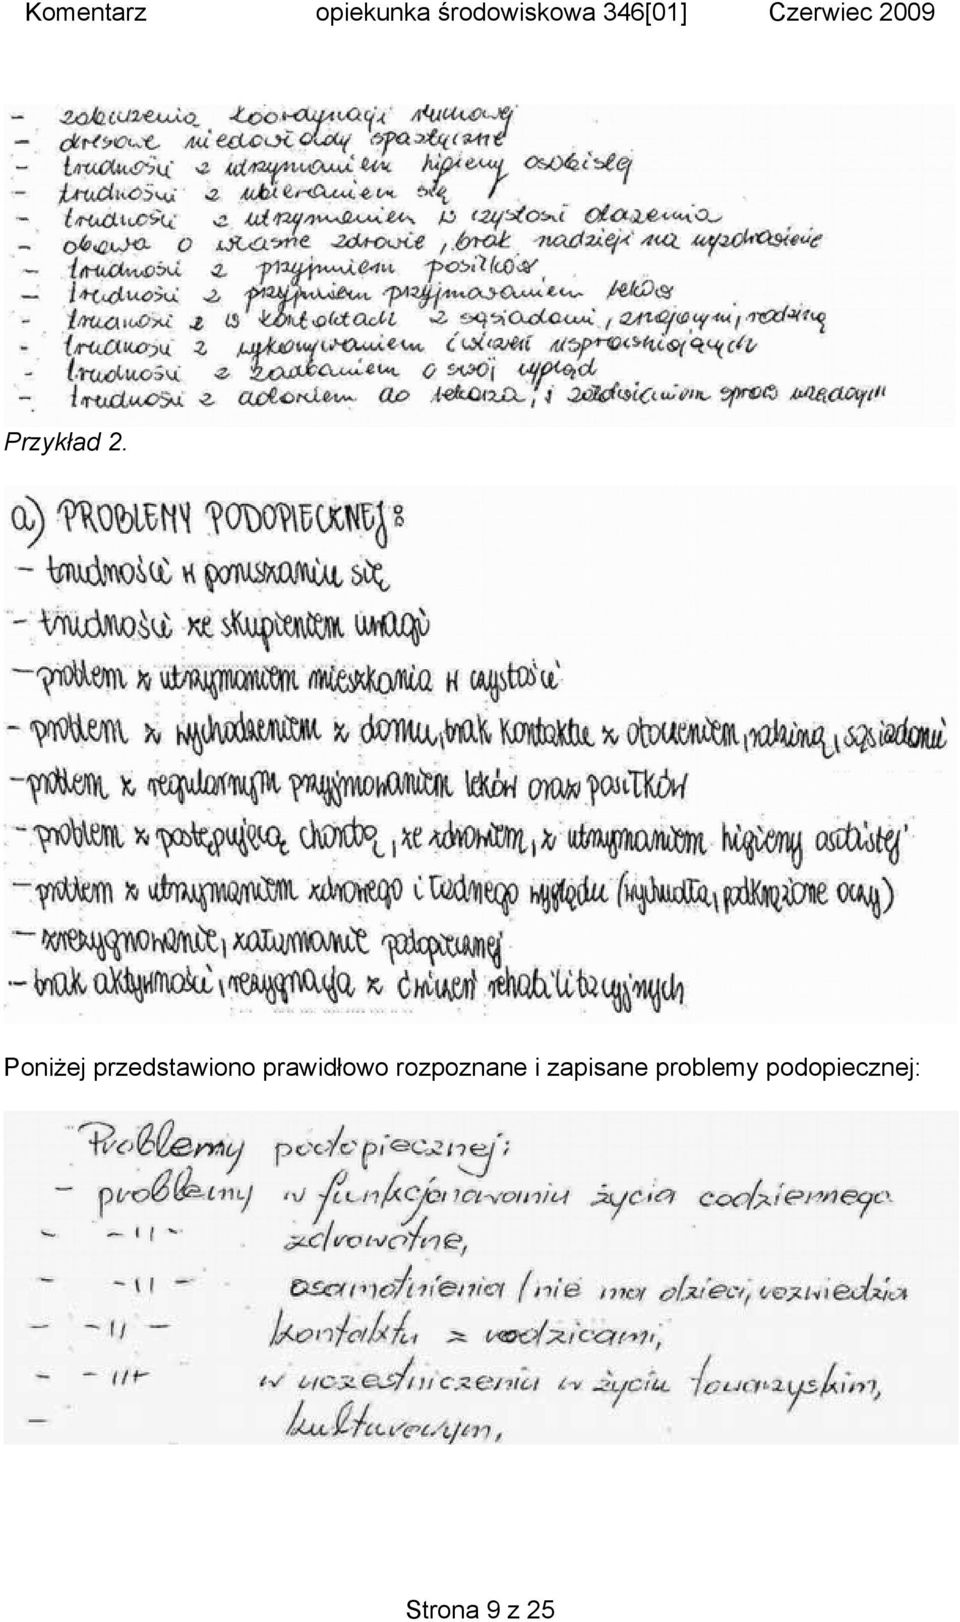 Komentarz opiekunka środowiskowa 346[01] Czerwiec 2009
- zaburzenia koordynacji ruchowej
- okresowe niedowłady spastyczne
- trudności z utrzymaniem higieny osobistej
- trudności z ubieraniem się
- trudności z utrzymaniem w czystości otoczenia
- obawa o własne zdrowie, brak nadzieji na wyzdrowienie
- trudności z przyjmniem posiłków
- trudności z przyjmniem przyjmowaniem leków
- trudności z w kontaktach z sąsiadami, znajomymi, rodziną
- trudności z wykonywaniem ćwiczeń usprawniających
- trudności z zadbaniem o swój wygląd
- trudności z dotarciem do lekarza, i załatwieniem spraw urzędowych
Przykład 2.
a) PROBLEMY PODOPIECZNEJ:
- trudności w poruszaniu się
- trudności ze skupieniem uwagi
- problem z utrzymaniem mieszkania w czystości
- problem z wychodzeniem z domu, brak kontaktu z otoczeniem, rodziną, sąsiadami
- problem z regularnym przyjmowaniem leków oraz posiłków
- problem z postępującą chorobą, ze zdrowiem, z utrzymaniem higieny osobistej
- problem z utrzymaniem zdrowego i ładnego wyglądu (wychudła, podkrążone oczy)
- zrezygnowanie, załamanie podopiecznej
- brak aktywności, rezygnacja z ćwiczeń rehabilitacyjnych
Poniżej przedstawiono prawidłowo rozpoznane i zapisane problemy podopiecznej:
Problemy podopiecznej:
- problemy w funkcjonowaniu życia codziennego
- -11- zdrowotne,
- -11- osamotnienia / nie ma dzieci, rozwiedzia
- -11- kontaktu z rodzicami,
- -11- w uczestniczeniu w życiu towarzyskim,
- kulturowym,
Strona 9 z 25